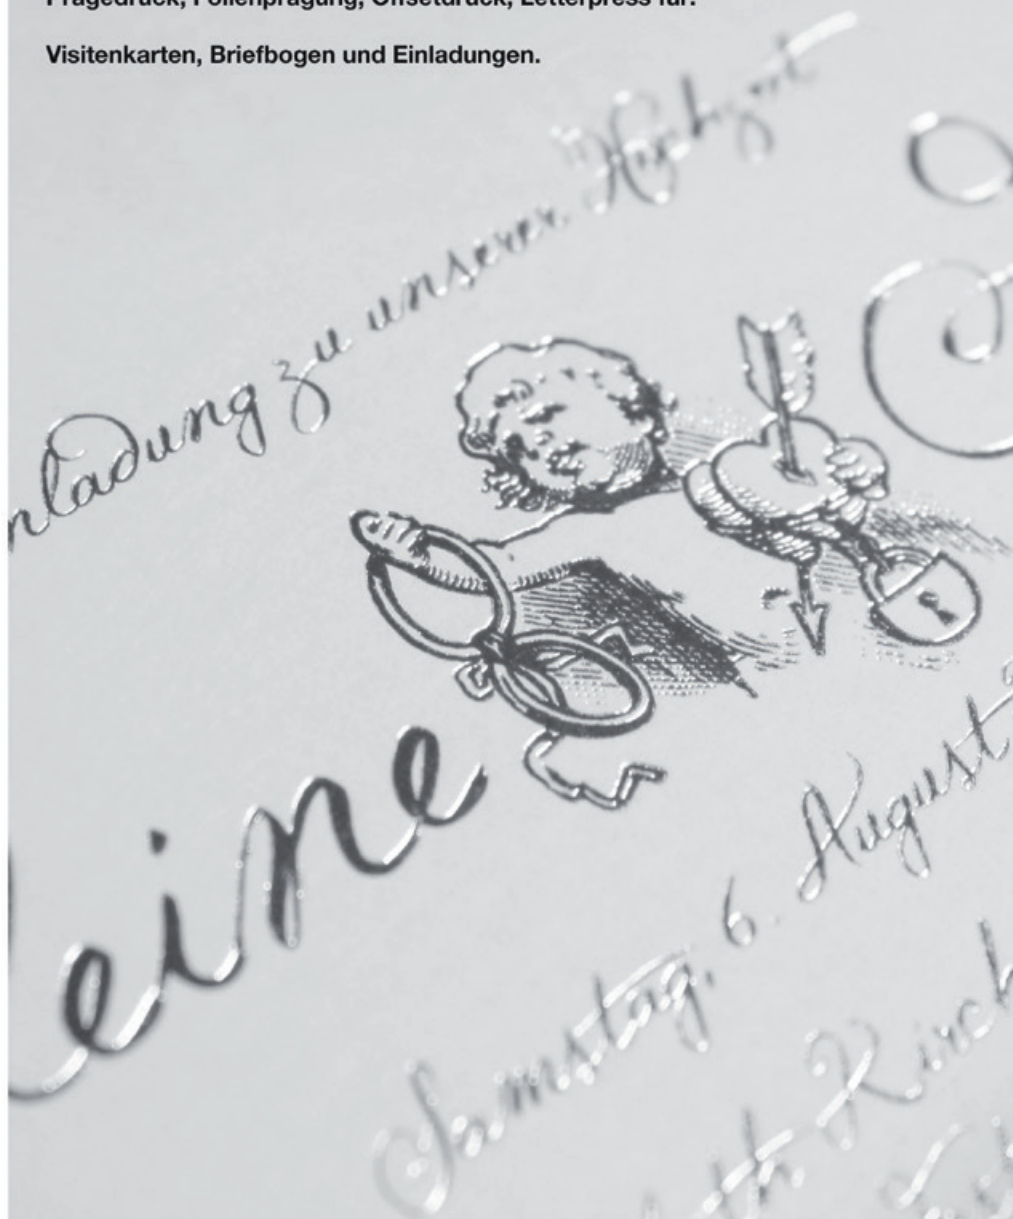 Prägedruck, Folienprägung, Offsetdruck, Letterpress für:
Visitenkarten, Briefbogen und Einladungen.
nladung zu unserer Hochzeit
eine
Samstag, 6. August
Kirch